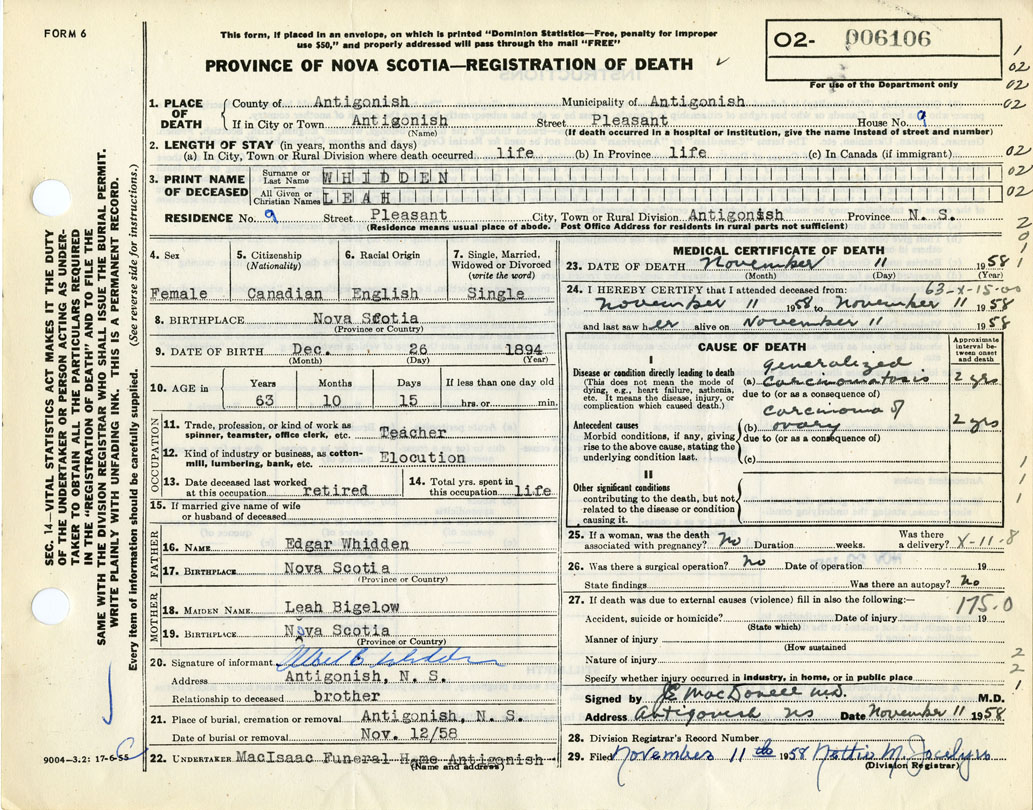 FORM 6
This form, if placed in an envelope, on which is printed "Dominion Statistics—Free, penalty for improper
use $50," and properly addressed will pass through the mail "FREE"
02- 006106
PROVINCE OF NOVA SCOTIA—REGISTRATION OF DEATH
For use of the Department only
1. PLACE OF DEATH County of Antigonish Municipality of Antigonish
If in City or Town Antigonish Street Pleasant House No. 9
(Name) (If death occurred in a hospital or institution, give the name instead of street and number)
2. LENGTH OF STAY (in years, months and days)
(a) In City, Town or Rural Division where death occurred life (b) In Province life (c) In Canada (if immigrant)
3. PRINT NAME OF DECEASED
Surname or Last Name WHIDDEN
All Given or Christian Names LEAH
RESIDENCE No. 9 Street Pleasant City, Town or Rural Division Antigonish Province N. S.
(Residence means usual place of abode. Post Office Address for residents in rural parts not sufficient)
4. Sex Female
5. Citizenship (Nationality) Canadian
6. Racial Origin English
7. Single, Married, Widowed or Divorced (write the word) Single
8. BIRTHPLACE Nova Scotia
(Province or Country)
9. DATE OF BIRTH Dec. 26 1894
(Month) (Day) (Year)
10. AGE in Years Months Days If less than one day old
63 10 15 hrs. or min.
OCCUPATION
11. Trade, profession, or kind of work as spinner, teamster, office clerk, etc. Teacher
12. Kind of industry or business, as cotton-mill, lumbering, bank, etc. Elocution
13. Date deceased last worked at this occupation retired
14. Total yrs. spent in this occupation life
15. If married give name of wife or husband of deceased
FATHER
16. NAME Edgar Whidden
17. BIRTHPLACE Nova Scotia
(Province or Country)
MOTHER
18. MAIDEN NAME Leah Bigelow
19. BIRTHPLACE Nova Scotia
(Province or Country)
20. Signature of informant Whidden
Address Antigonish, N. S.
Relationship to deceased brother
21. Place of burial, cremation or removal Antigonish, N. S.
Date of burial or removal Nov. 12/58
22. UNDERTAKER MacIsaac Funeral Home Antigonish
(Name and address)
MEDICAL CERTIFICATE OF DEATH
23. DATE OF DEATH November 11 1958
(Month) (Day) (Year)
63-X-15-00
24. I HEREBY CERTIFY that I attended deceased from:
November 11 1958 to November 11 1958
and last saw her alive on November 11 1958
CAUSE OF DEATH
Approximate interval between onset and death
I
Disease or condition directly leading to death
(This does not mean the mode of dying, e.g., heart failure, asthenia, etc. It means the disease, injury, or complication which caused death.)
(a) generalized carcinomatosis 2 yrs
due to (or as a consequence of)
Antecedent causes
Morbid conditions, if any, giving rise to the above cause, stating the underlying condition last.
(b) carcinoma of ovary 2 yrs
due to (or as a consequence of)
(c)
II
Other significant conditions
contributing to the death, but not related to the disease or condition causing it.
25. If a woman, was the death associated with pregnancy? No Duration weeks. Was there a delivery? X-11-8
26. Was there a surgical operation? No Date of operation 19
State findings Was there an autopsy? No
27. If death was due to external causes (violence) fill in also the following:—
175.0
Accident, suicide or homicide? Date of injury 19
(State which)
Manner of injury
(How sustained
Nature of injury
Specify whether injury occurred in industry, in home, or in public place
Signed by J E MacDonell M.D. M.D.
Address Antigonish NS Date November 11 1958
28. Division Registrar's Record Number
29. Filed November 11th 1958 Nettie M. Jocelyn
(Division Registrar)
SEC. 14—VITAL STATISTICS ACT MAKES IT THE DUTY
OF THE UNDERTAKER OR PERSON ACTING AS UNDER-
TAKER TO OBTAIN ALL THE PARTICULARS REQUIRED
IN THE "REGISTRATION OF DEATH" AND TO FILE THE
SAME WITH THE DIVISION REGISTRAR WHO SHALL ISSUE THE BURIAL PERMIT.
WRITE PLAINLY WITH UNFADING INK. THIS IS A PERMANENT RECORD.
Every item of information should be carefully supplied. (See reverse side for instructions.)
9004—3.2: 17-6-55
1
02
02
02
02
02
2
0
1
1
1
1
2
2
1